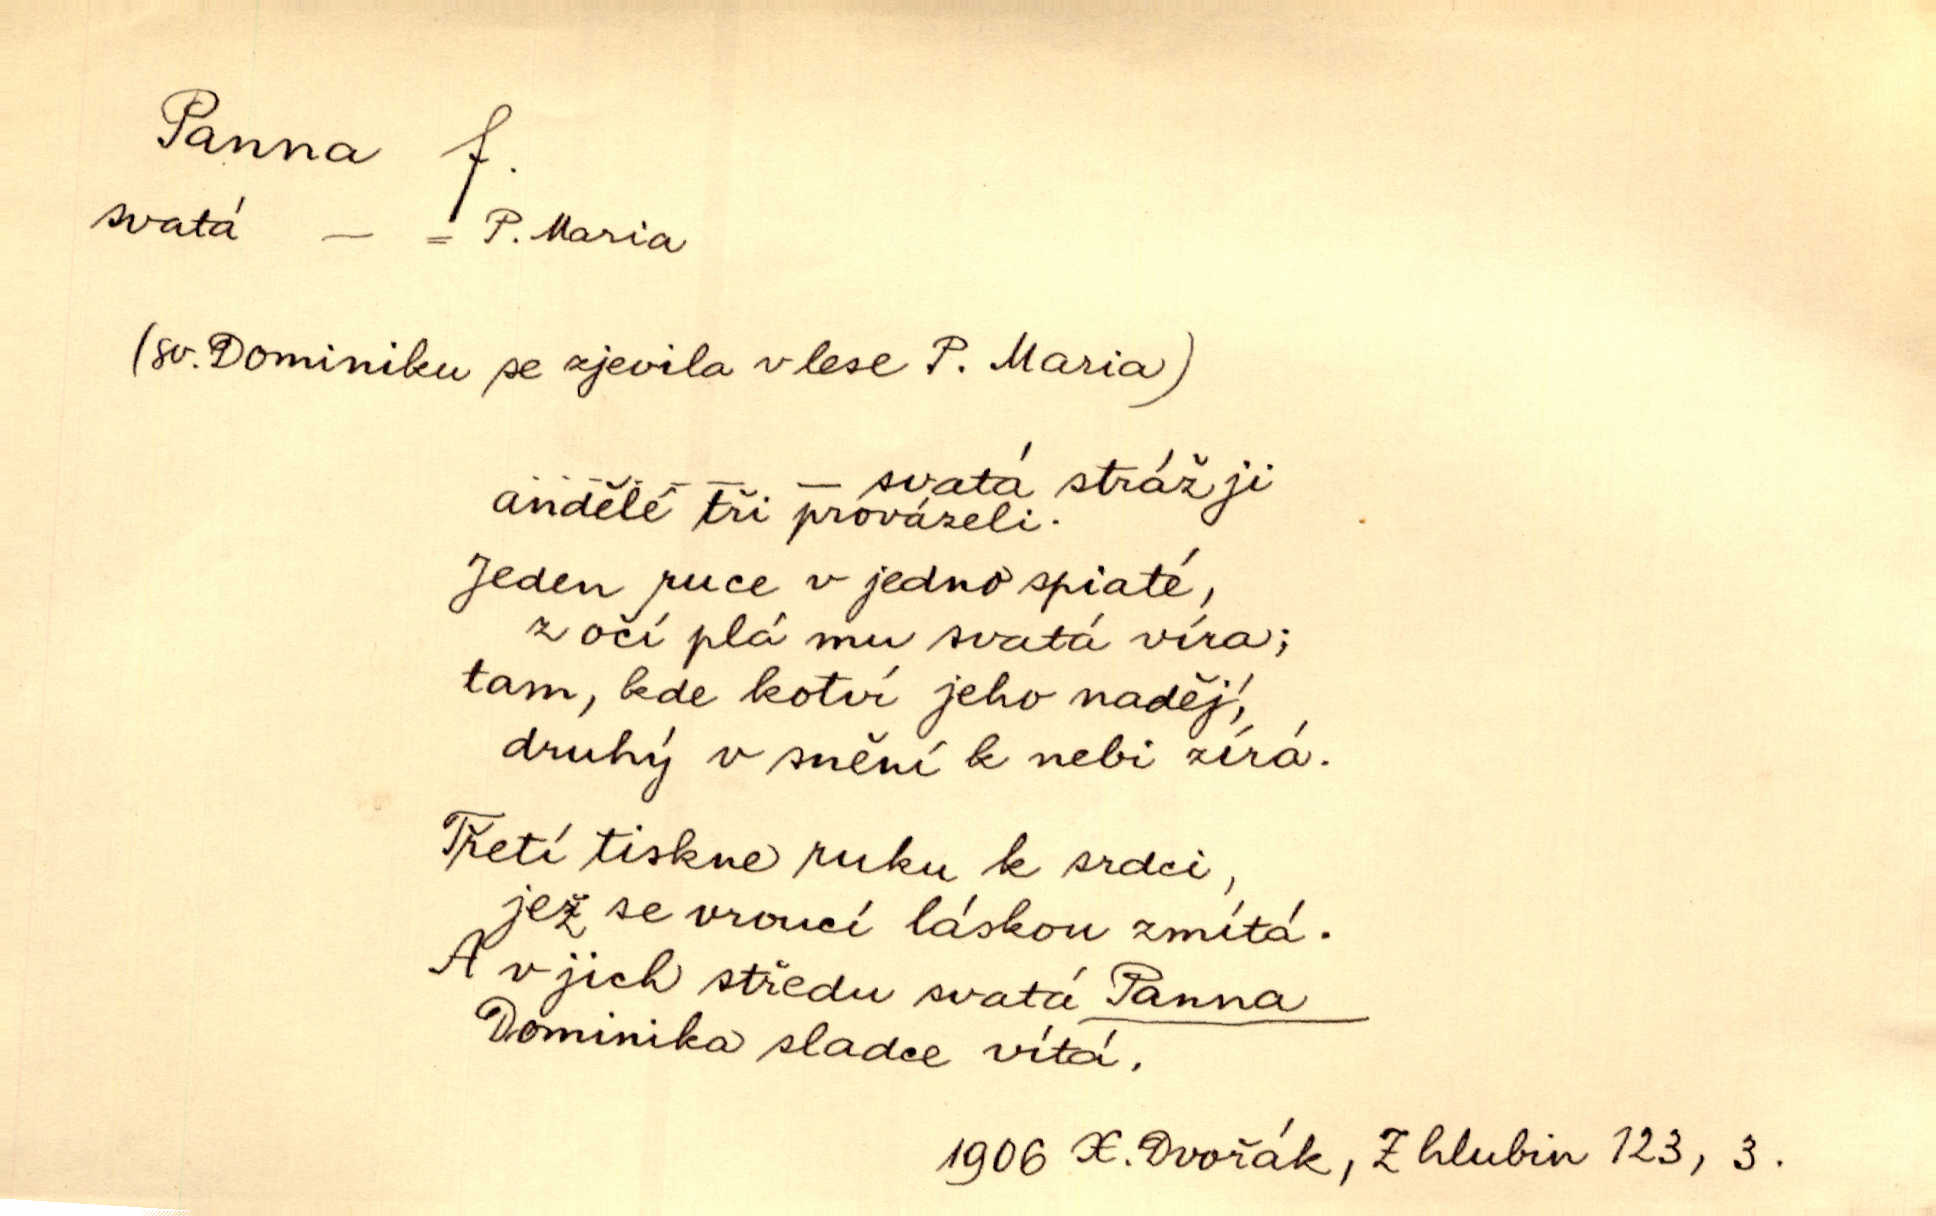 Panna f.
svatá — = P. Maria
(sv. Dominiku se zjevila v lese P. Maria)
— — svatá stráž ji
andělé tři provázeli.
Jeden ruce v jedno spiaté,
z očí plá mu svatá víra;
tam, kde kotví jeho naděj,
druhý v snění k nebi zírá.
Třetí tiskne ruku k srdci,
jež se vroucí láskou zmítá.
A v jich středu svatá Panna
Dominika sladce vítá.
1906 X. Dvořák, Z hlubin 123, 3.